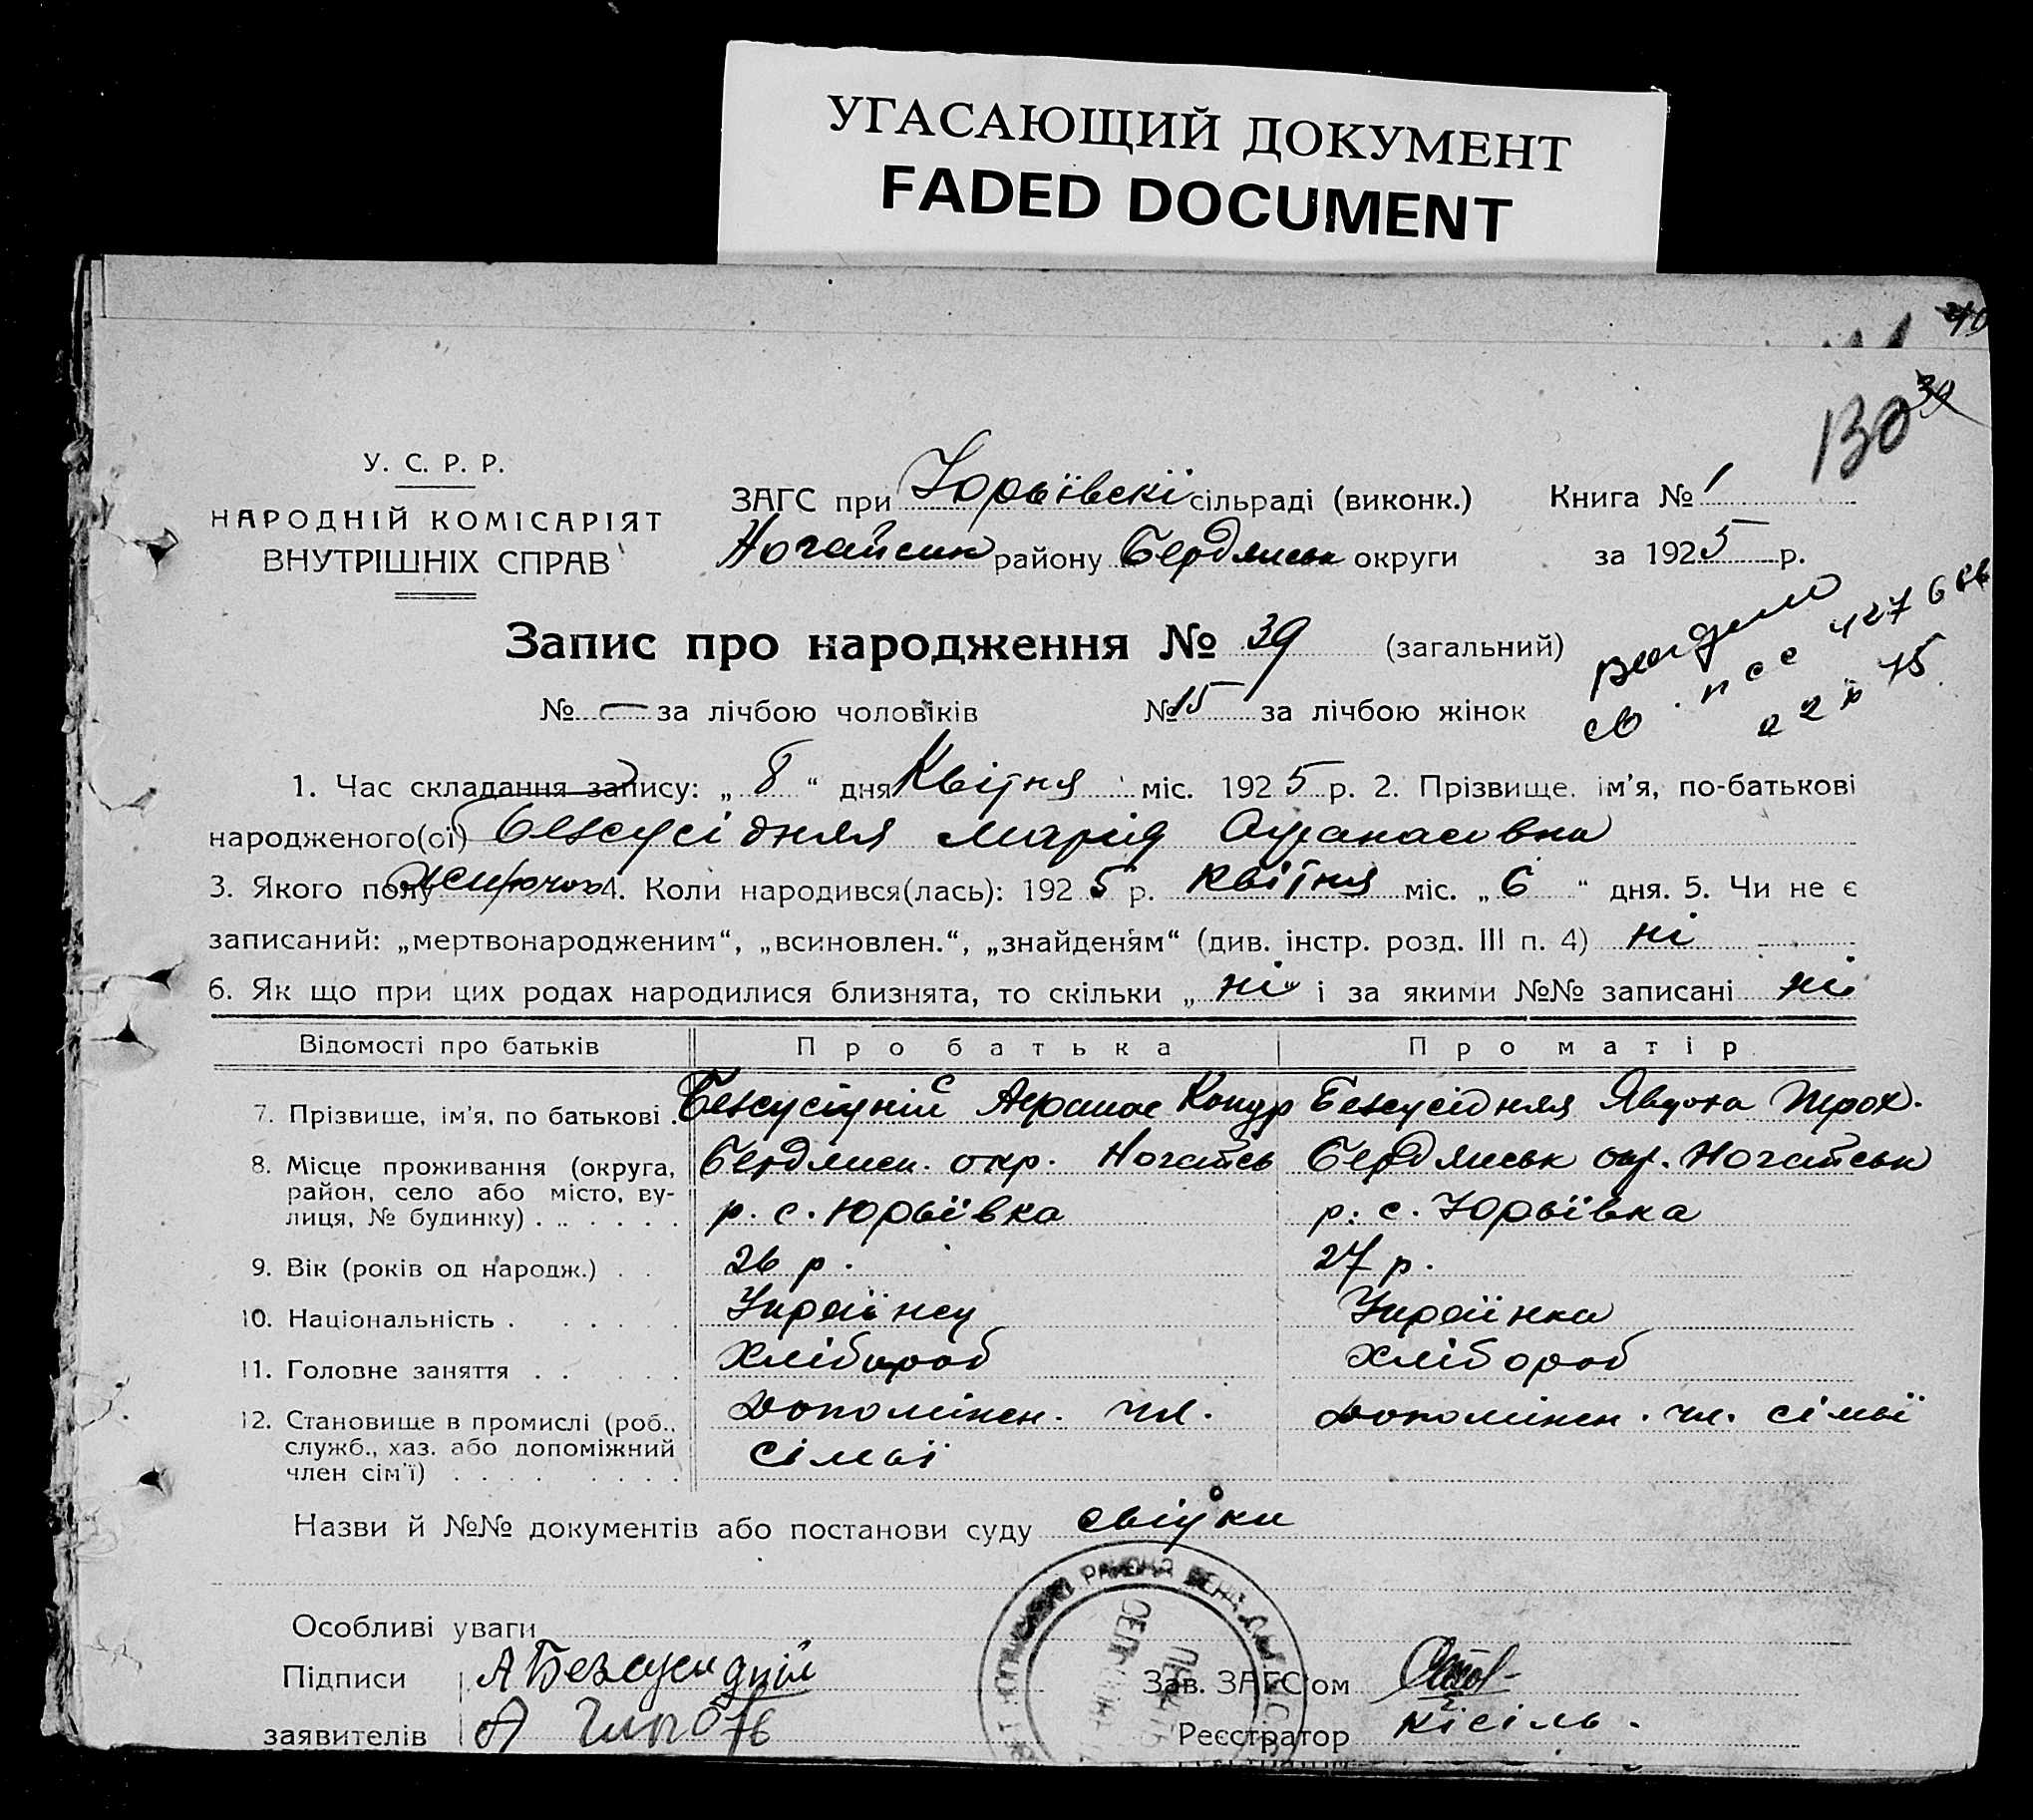 УГАСАЮЩИЙ ДОКУМЕНТ
FADED DOCUMENT
40
39
130
У. С. Р. Р.
НАРОДНІЙ КОМІСАРІЯТ
ВНУТРІШНІХ СПРАВ
ЗАГС при Юрьївскі сільраді (виконк.)
Книга № 1
Ногайськ району Бердянськ округи
за 1925 р.
Запис про народження № 39 (загальний)
№ — за лічбою чоловіків
№ 15 за лічбою жінок
1. Час складання запису: „ 8 “ дня Квітня міс. 1925 р. 2. Прізвище, ім'я, по-батькові
народженого(ої) Безсусідняя Марія Афанасовна
3. Якого полу жіночого 4. Коли народився(лась): 1925 р. Квітня міс. „ 6 “ дня. 5. Чи не є
записаний: „мертвонародженим“, „всиновлен.“, „знайденям“ (див. інстр. розд. III п. 4) ні
6. Як що при цих родах народилися близнята, то скільки „ ні “ і за якими №№ записані ні
Відомості про батьків
Про батька
Про матір
7. Прізвище, ім'я, по батькові .
Безсусідній Афанас
Безсусідняя Явдоха Трох.
8. Місце проживання (округа,
район, село або місто, ву-
лиця, № будинку) . . . . . .
Бердянск. окр. Ногайсь
р. с. Юрьївка
Бердянськ окр. Ногайськ
р. с. Юрьївка
9. Вік (років од народж.) . .
26 р.
27 р.
10. Національність . . . . . .
Украінец
Украінка
11. Головне заняття . . . . .
Хлібороб
хлібороб
12. Становище в промислі (роб.,
служб., хаз. або допоміжний
член сім'ї) . . . . . . . .
Допоміжн. чл.
сімьї
Допоміжн. чл. сімьї
Назви й №№ документів або постанови суду свідки
Особливі уваги
Підписи
заявителів
А Безсусидний
А
Зав. ЗАГС'ом
Реєстратор Кісіль.